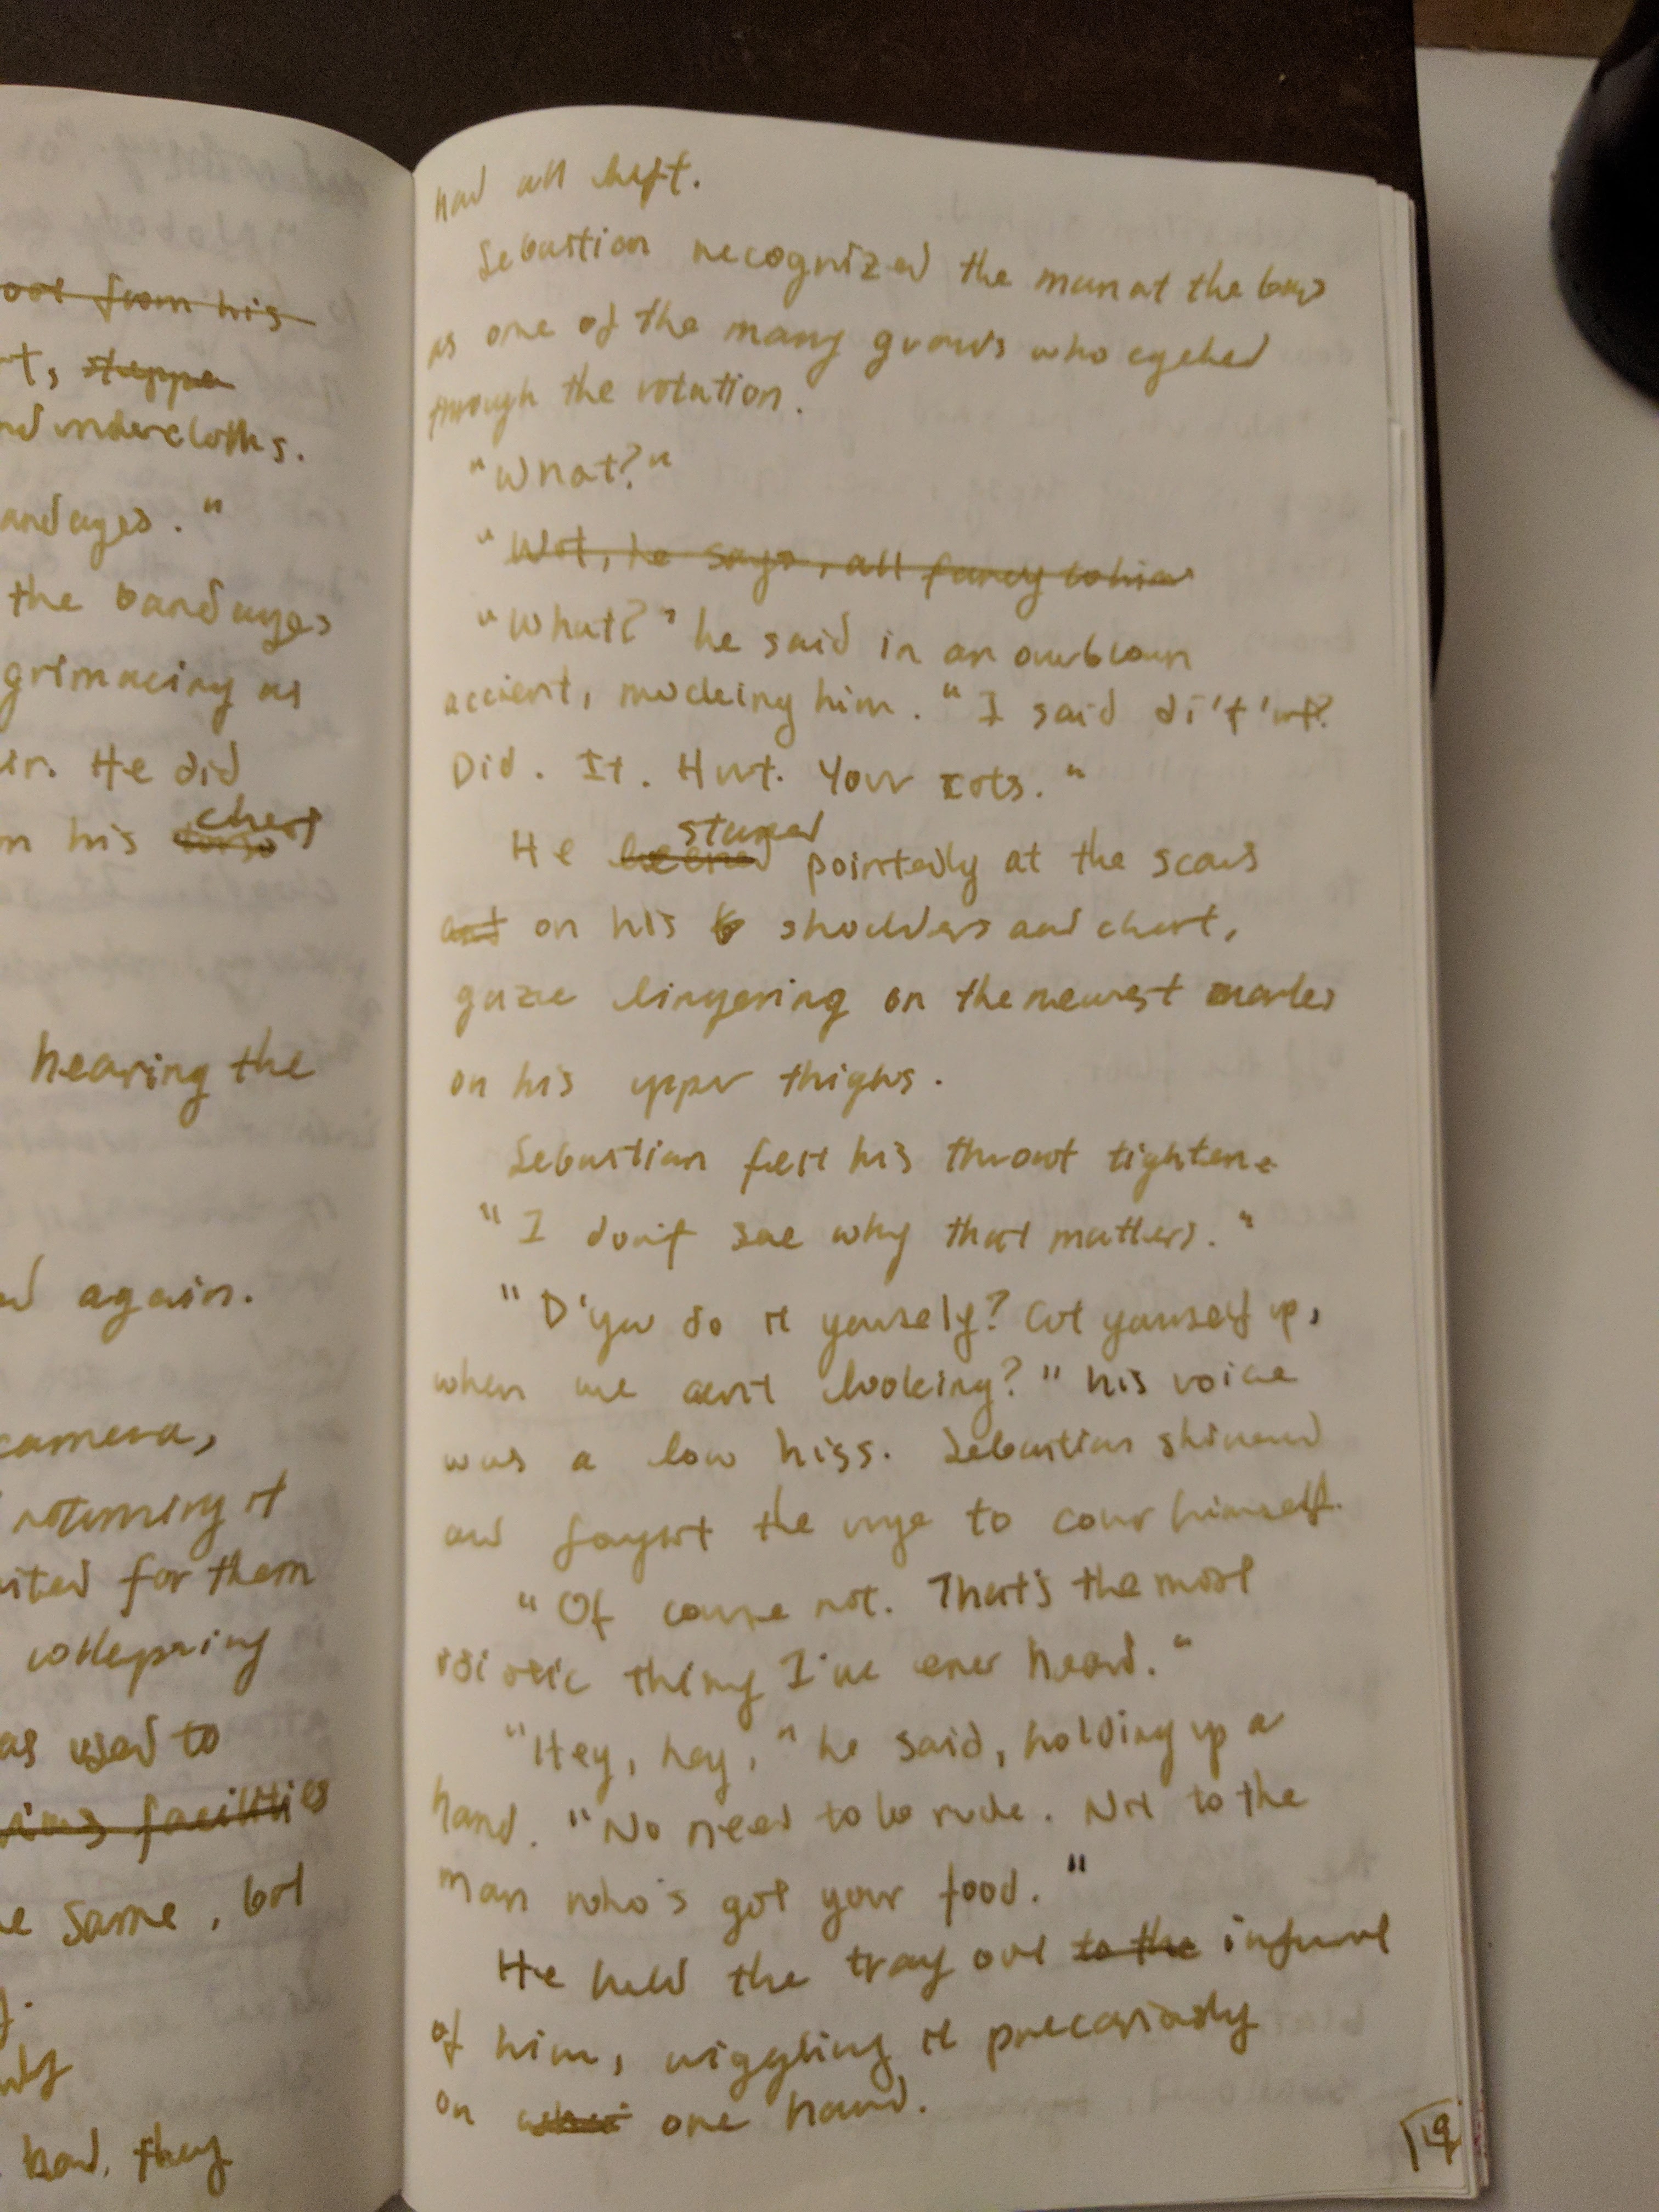 oot from his
t, steppe
nd undercloths.
andages."
the bandages
grimacing as
er. He did
n his torso chest
hearing the
d again.
camera,
returning it
ited for them
as used to
facilities
e same, but
had, they
had all left.
Sebastian recognized the man at the bars
as one of the many guards who cycled
through the rotation.
"What?"
"Wot, he says, all fancy
"What?" he said in an overblown
accent, mocking him. "I said di't 'urt?
Did. It. Hurt. Your cots."
He leered stared pointedly at the scars
and on his shoulders and chest,
gaze lingering on the newest marks
on his upper thighs.
Sebastian felt his throat tighten.
"I don't see why that matters."
"D'you do it yourself? Cut yourself up,
when we aen't looking?" his voice
was a low hiss. Sebastian shivered
and fought the urge to cover himself.
"Of course not. That's the most
idiotic thing I've ever heard."
"Hey, hey," he said, holding up a
hand. "No need to be rude. Not to the
man who's got your food."
He held the tray out to the infront
of him, wiggling it precariously
on one hand.
19